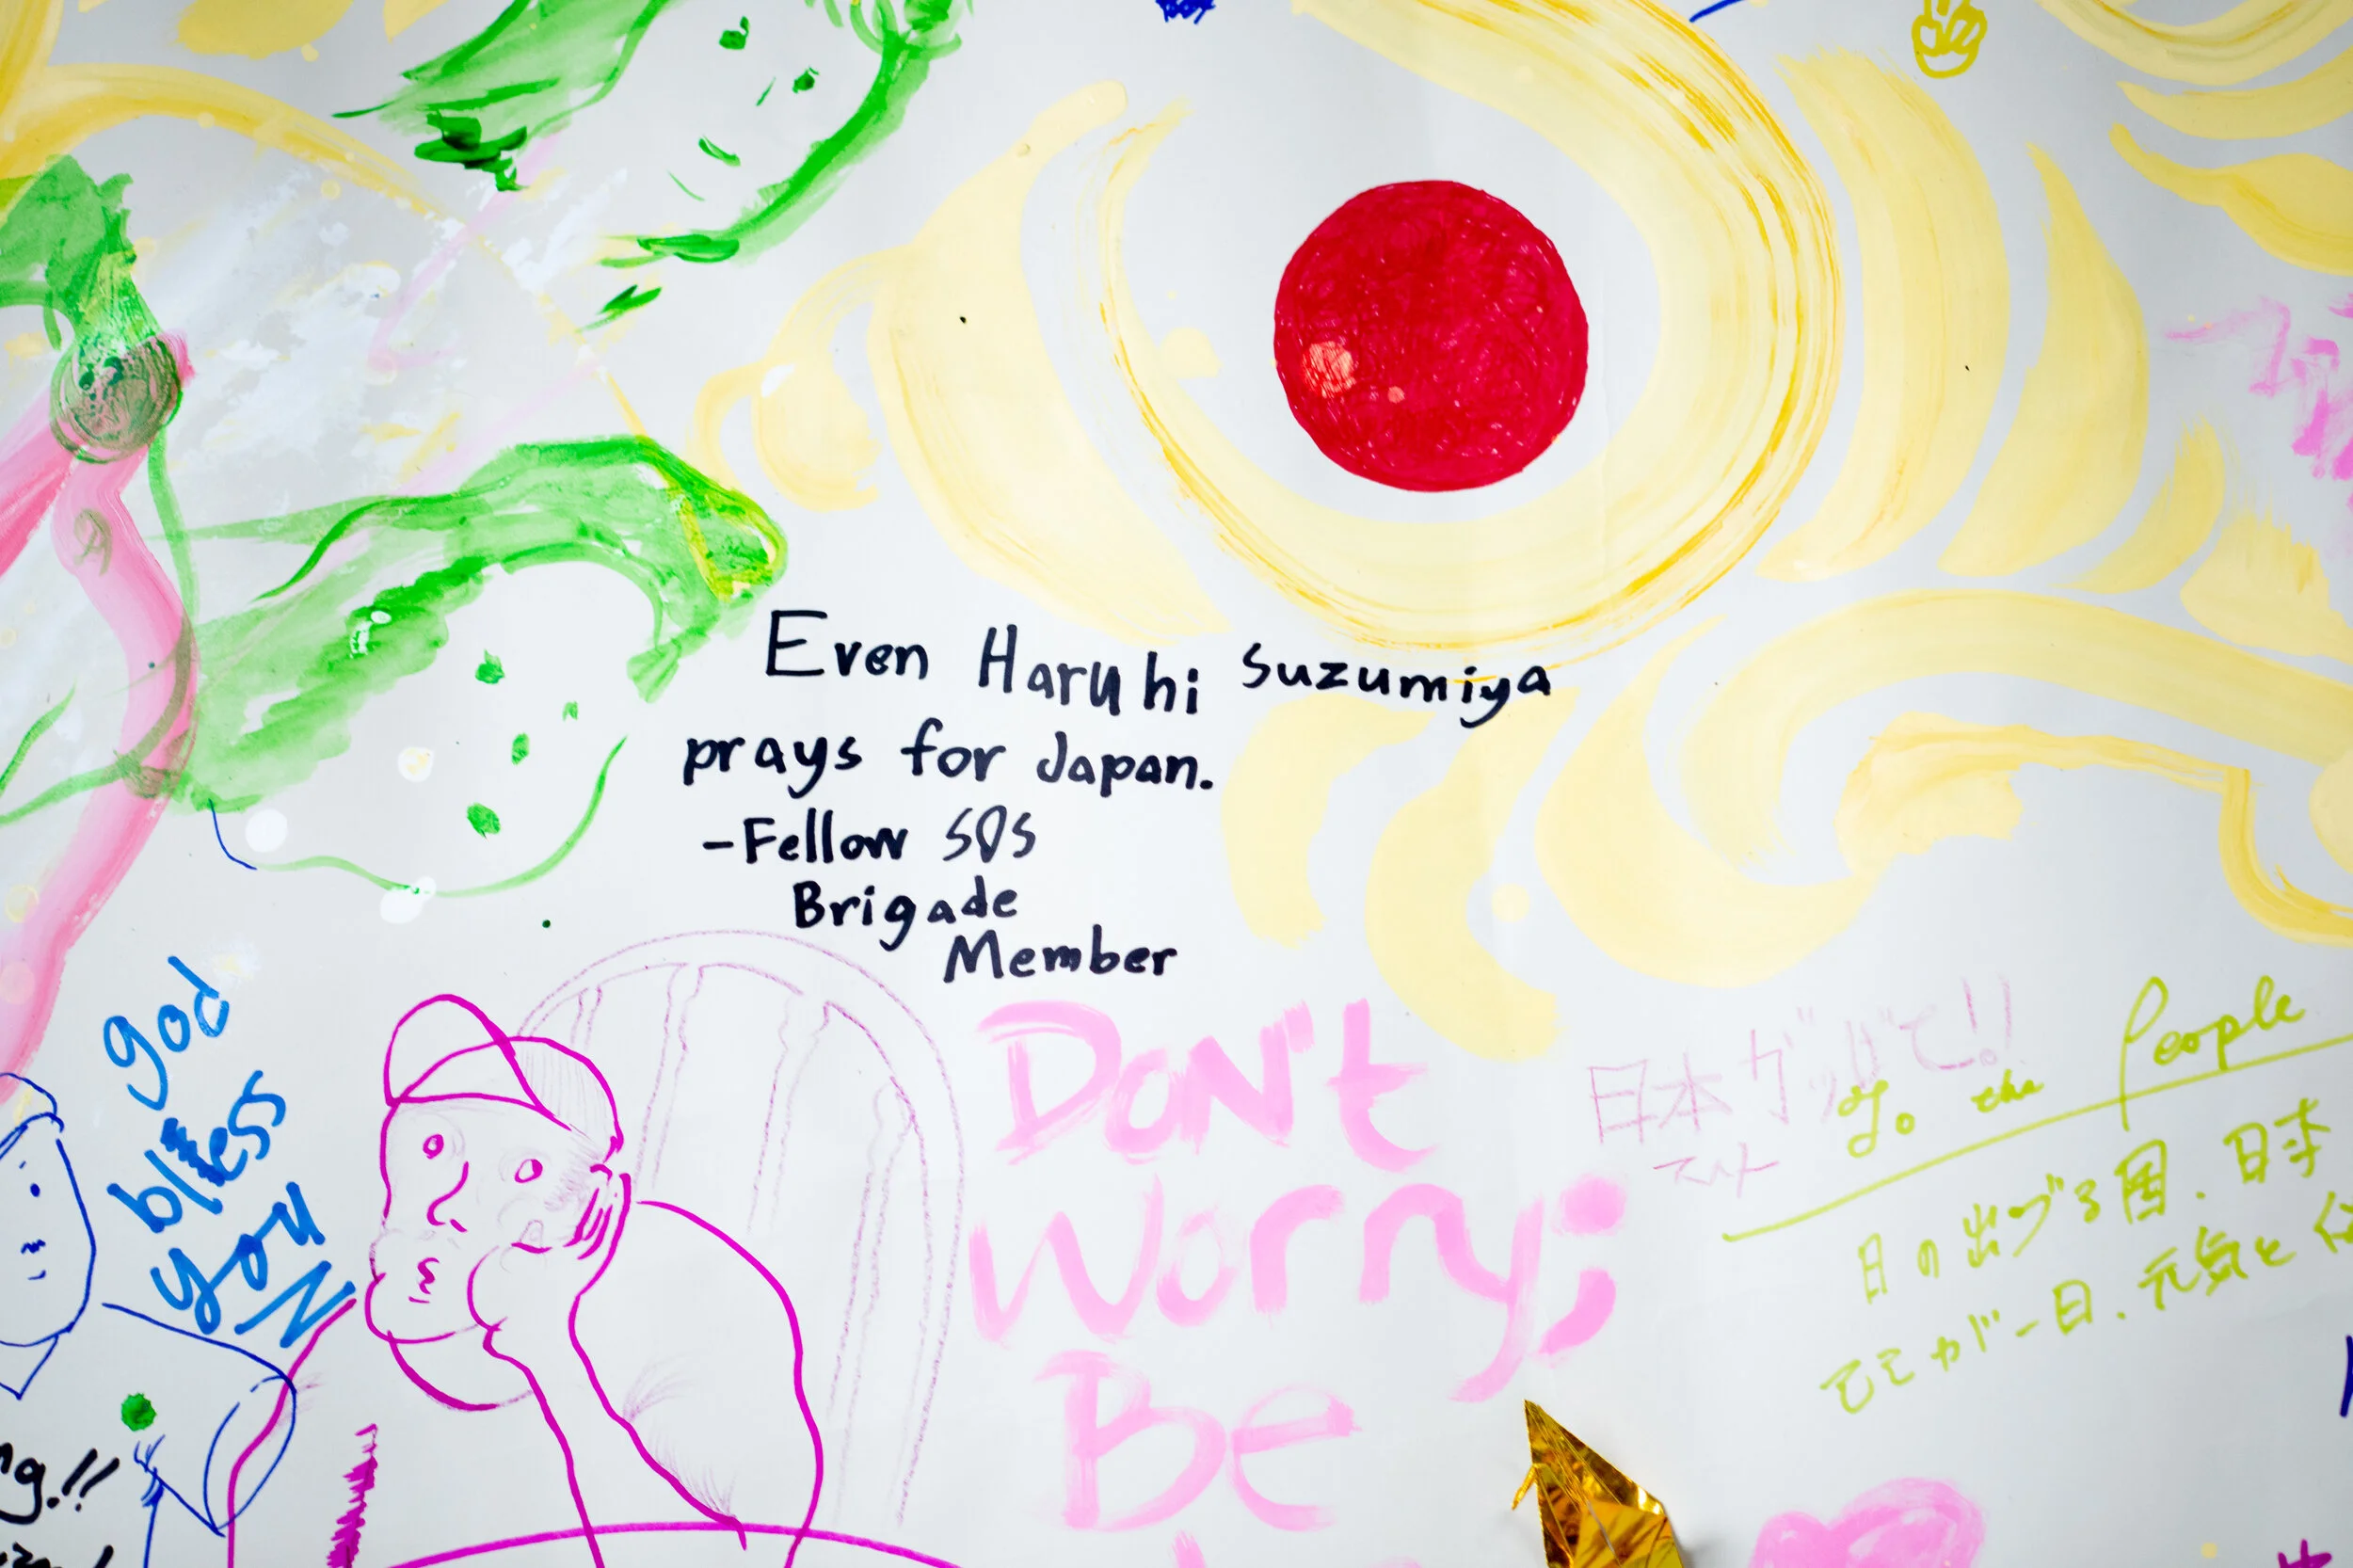 Even Haruhi Suzumiya
prays for Japan.
-Fellow SOS
Brigade
Member
god
bless
you
Don't
Worry;
Be
To the People
日の出づる国、日本
元気と